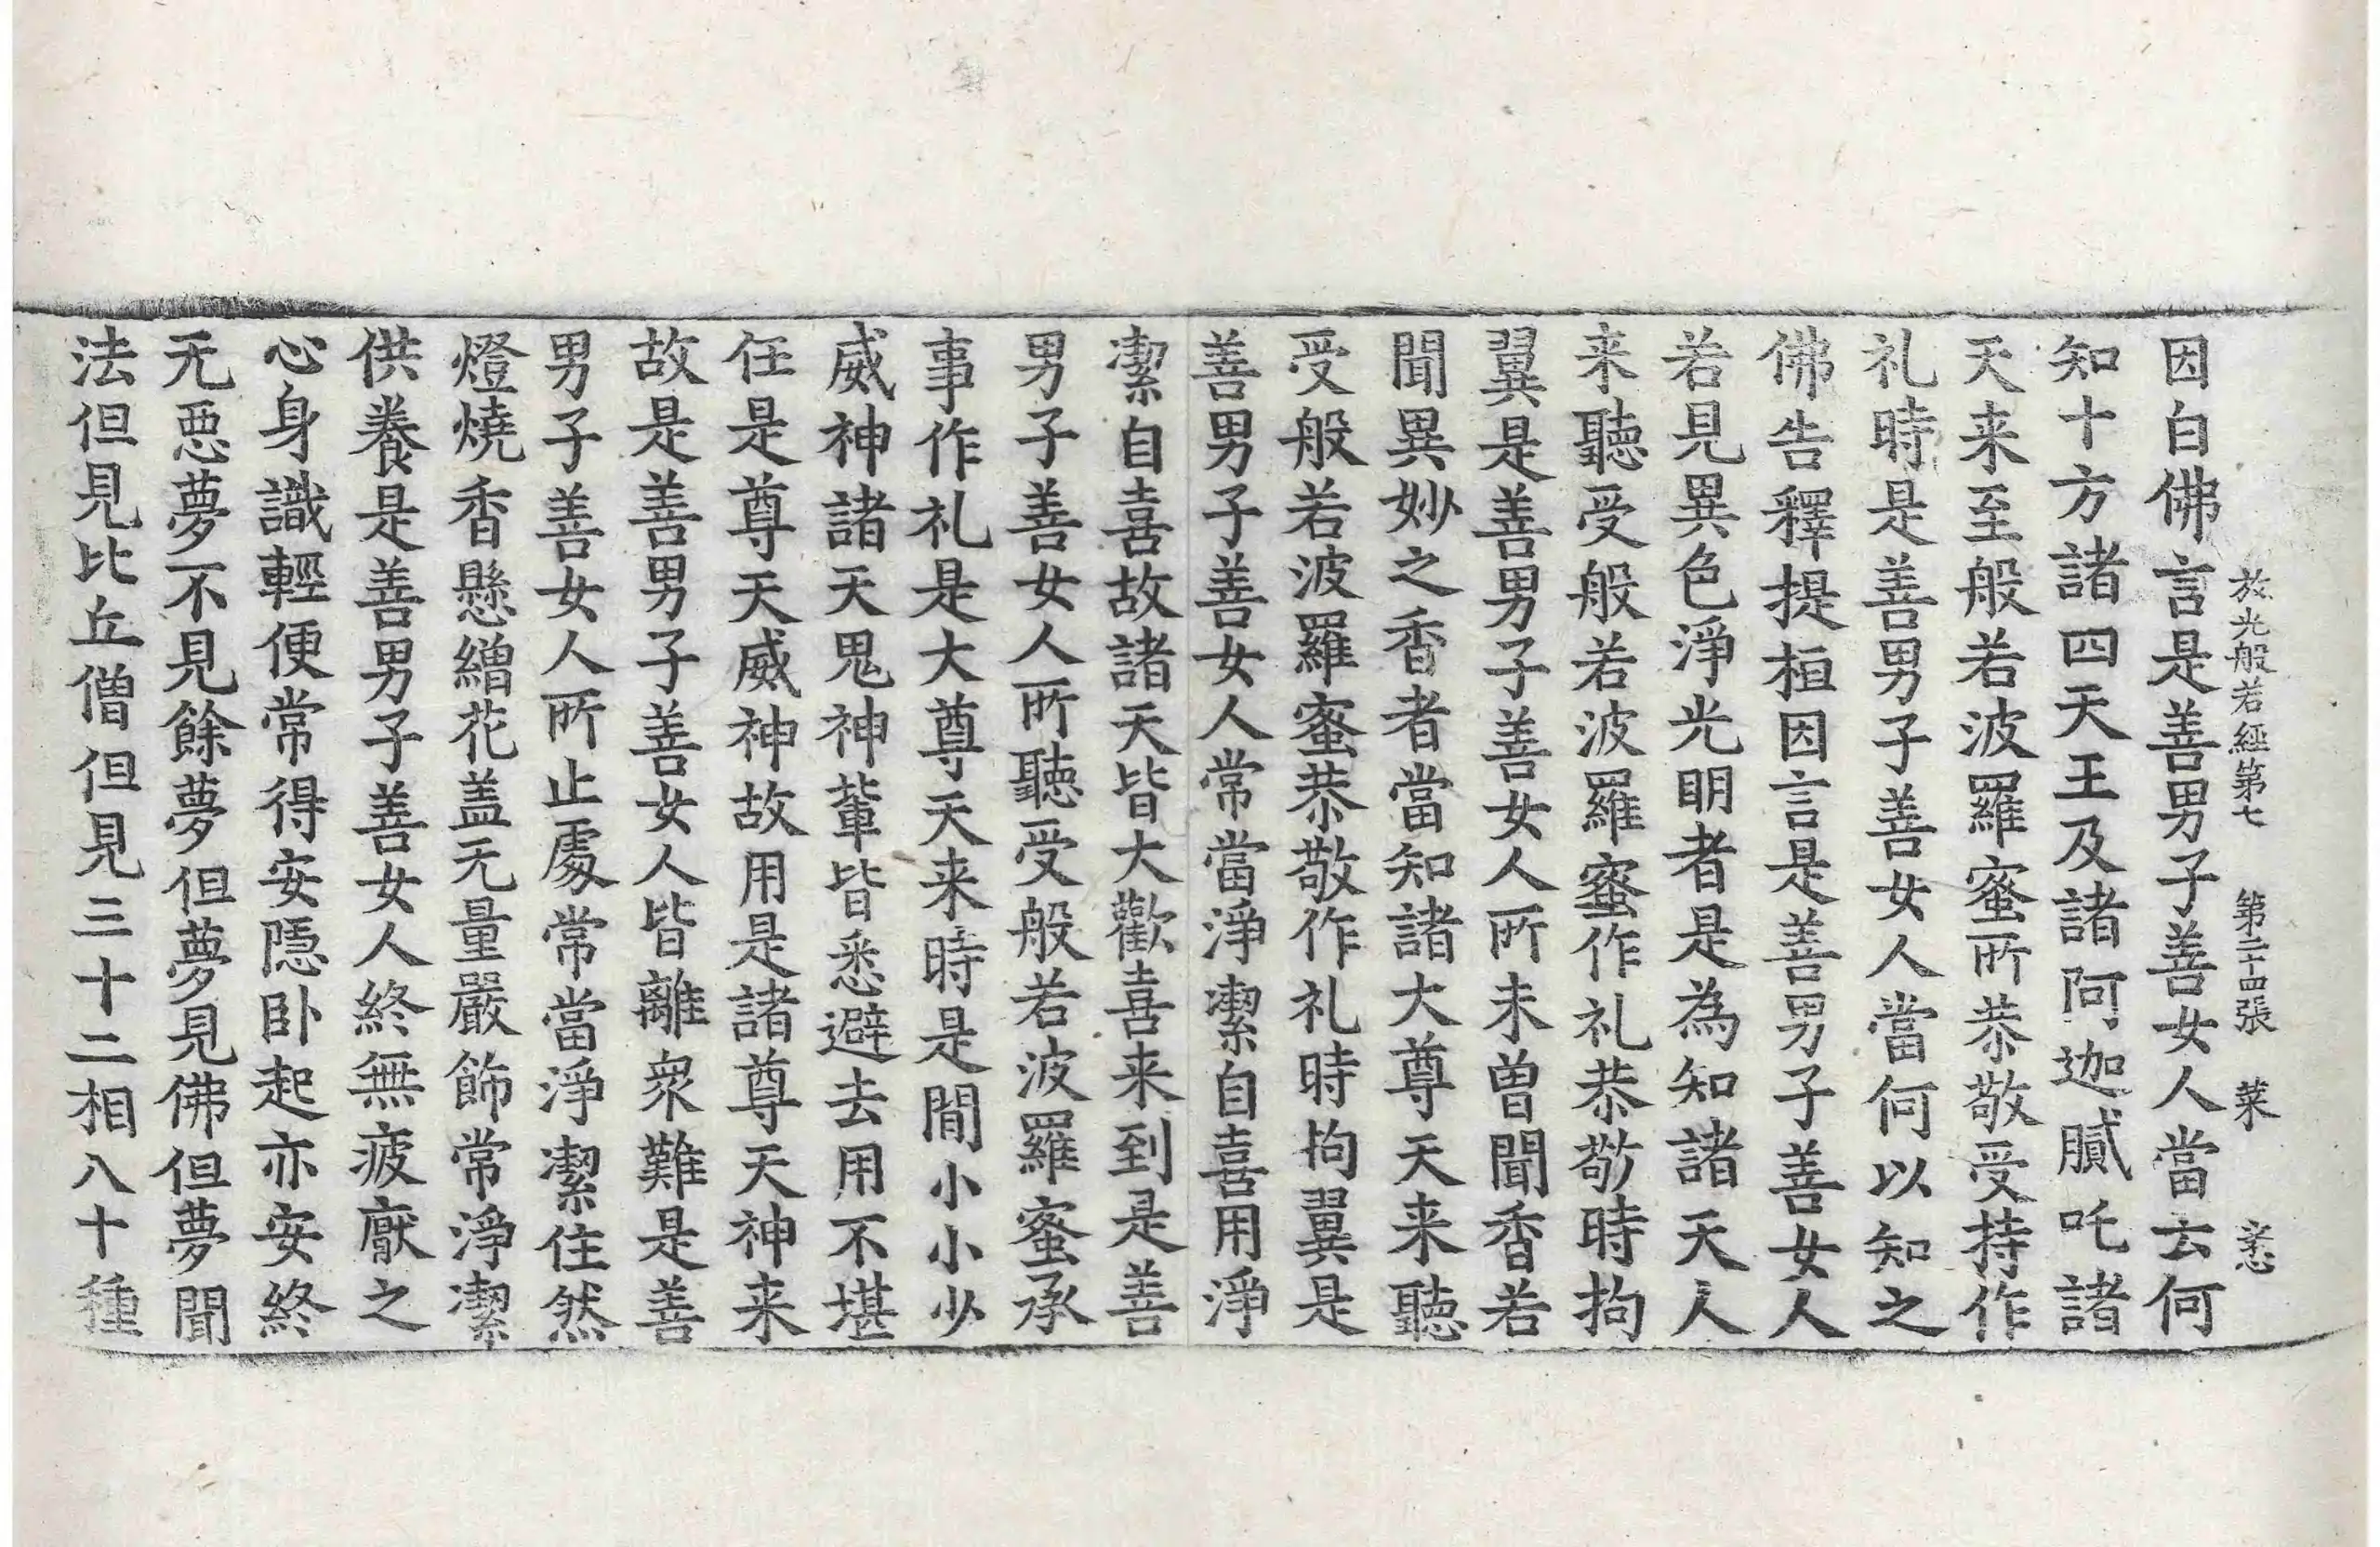 放光般若經第七　第二十四張　菜
因白佛言是善男子善女人當云何
知十方諸四天王及諸阿迦膩吒諸
天来至般若波羅蜜所恭敬受持作
礼時是善男子善女人當何以知之
佛告釋提桓因言是善男子善女人
若見異色淨光明者是為知諸天人
来聽受般若波羅蜜作礼恭敬時拘
翼是善男子善女人所未曽聞香若
聞異妙之香者當知諸大尊天来聽
受般若波羅蜜恭敬作礼時拘翼是
善男子善女人常當淨潔自喜用淨
潔自喜故諸天皆大歡喜来到是善
男子善女人所聽受般若波羅蜜承
事作礼是大尊天来時是間小小少
威神諸天鬼神輩皆悉避去用不堪
任是尊天威神故用是諸尊天神来
故是善男子善女人皆離衆難是善
男子善女人所止處常當淨潔住然
燈燒香懸繒花盖无量嚴飾常淨潔
供養是善男子善女人終無疲厭之
心身識輕便常得安隱卧起亦安終
无惡夢不見餘夢但夢見佛但夢聞
法但見比丘僧但見三十二相八十種